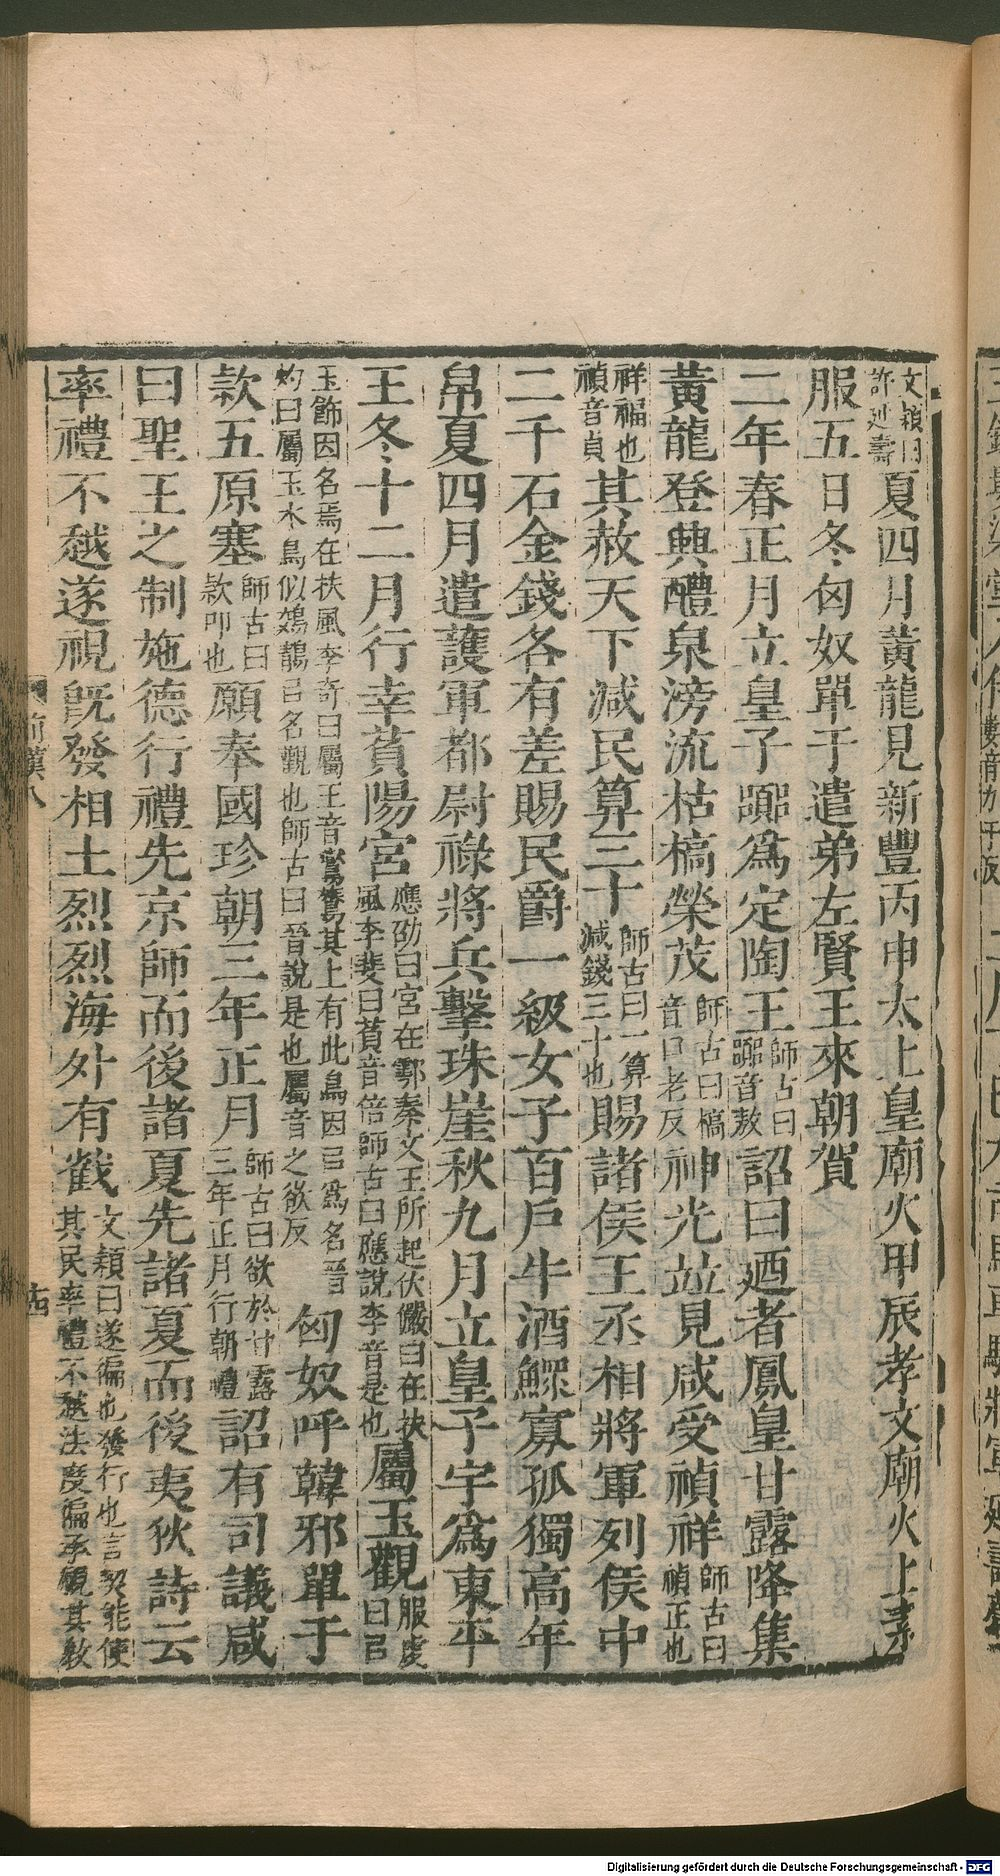 文穎曰許延壽夏四月黃龍見新豐丙申太上皇廟火甲辰孝文廟火上素
服五日冬匈奴單于遣弟左賢王來朝賀
二年春正月立皇子囂爲定陶王師古曰囂音敖詔曰廼者鳳皇甘露降集
黃龍登興醴泉滂流枯槁榮茂師古曰槁音口老反神光竝見咸受禎祥師古曰禎正也
祥福也禎音貞其赦天下減民算三十師古曰一算減錢三十也賜諸侯王丞相將軍列侯中
二千石金錢各有差賜民爵一級女子百戶牛酒鰥寡孤獨高年
帛夏四月遣護軍都尉祿將兵擊珠崖秋九月立皇子宇爲東平
王冬十二月行幸萯陽宮應劭曰宮在鄠秦文王所起伏儼曰在扶風李斐曰萯音倍師古曰應說李音是也屬玉觀服虔曰㠯
玉飾因名焉在扶風李奇曰屬玉音鸑鷟其上有此鳥因㠯爲名晉灼曰屬玉水鳥似鵁鶄㠯名觀也師古曰晉說是也屬音之欲反匈奴呼韓邪單于
款五原塞師古曰款叩也願奉國珍朝三年正月師古曰欲於甘露三年正月行朝禮詔有司議咸
曰聖王之制施德行禮先京師而後諸夏先諸夏而後夷狄詩云
率禮不越遂視旣發相土烈烈海外有截文穎曰遂徧也發行也言契能使其民率禮不越法度徧承視其敎
前漢八
十四
Digitalisierung gefördert durch die Deutsche Forschungsgemeinschaft - DFG